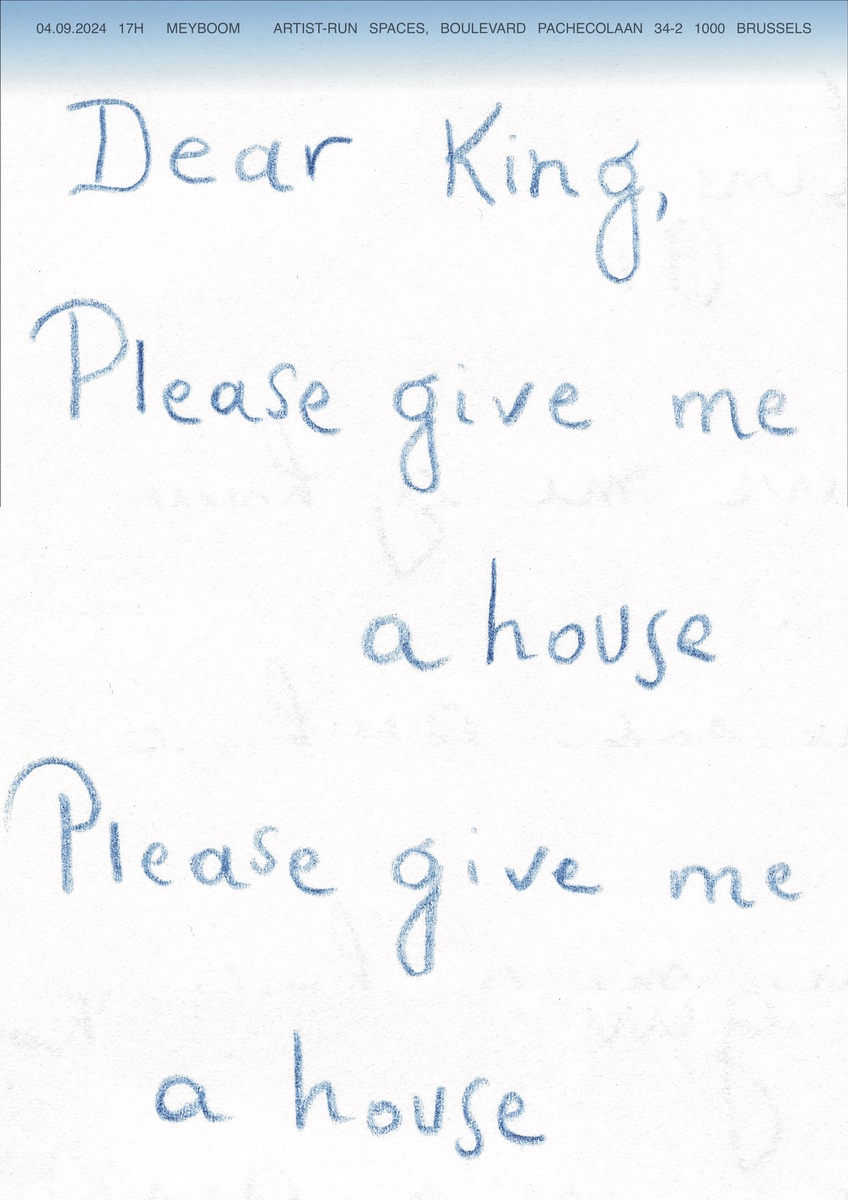 04.09.2024 17H MEYBOOM ARTIST-RUN SPACES, BOULEVARD PACHECOLAAN 34-2 1000 BRUSSELS
Dear King,
Please give me
a house
Please give me
a house